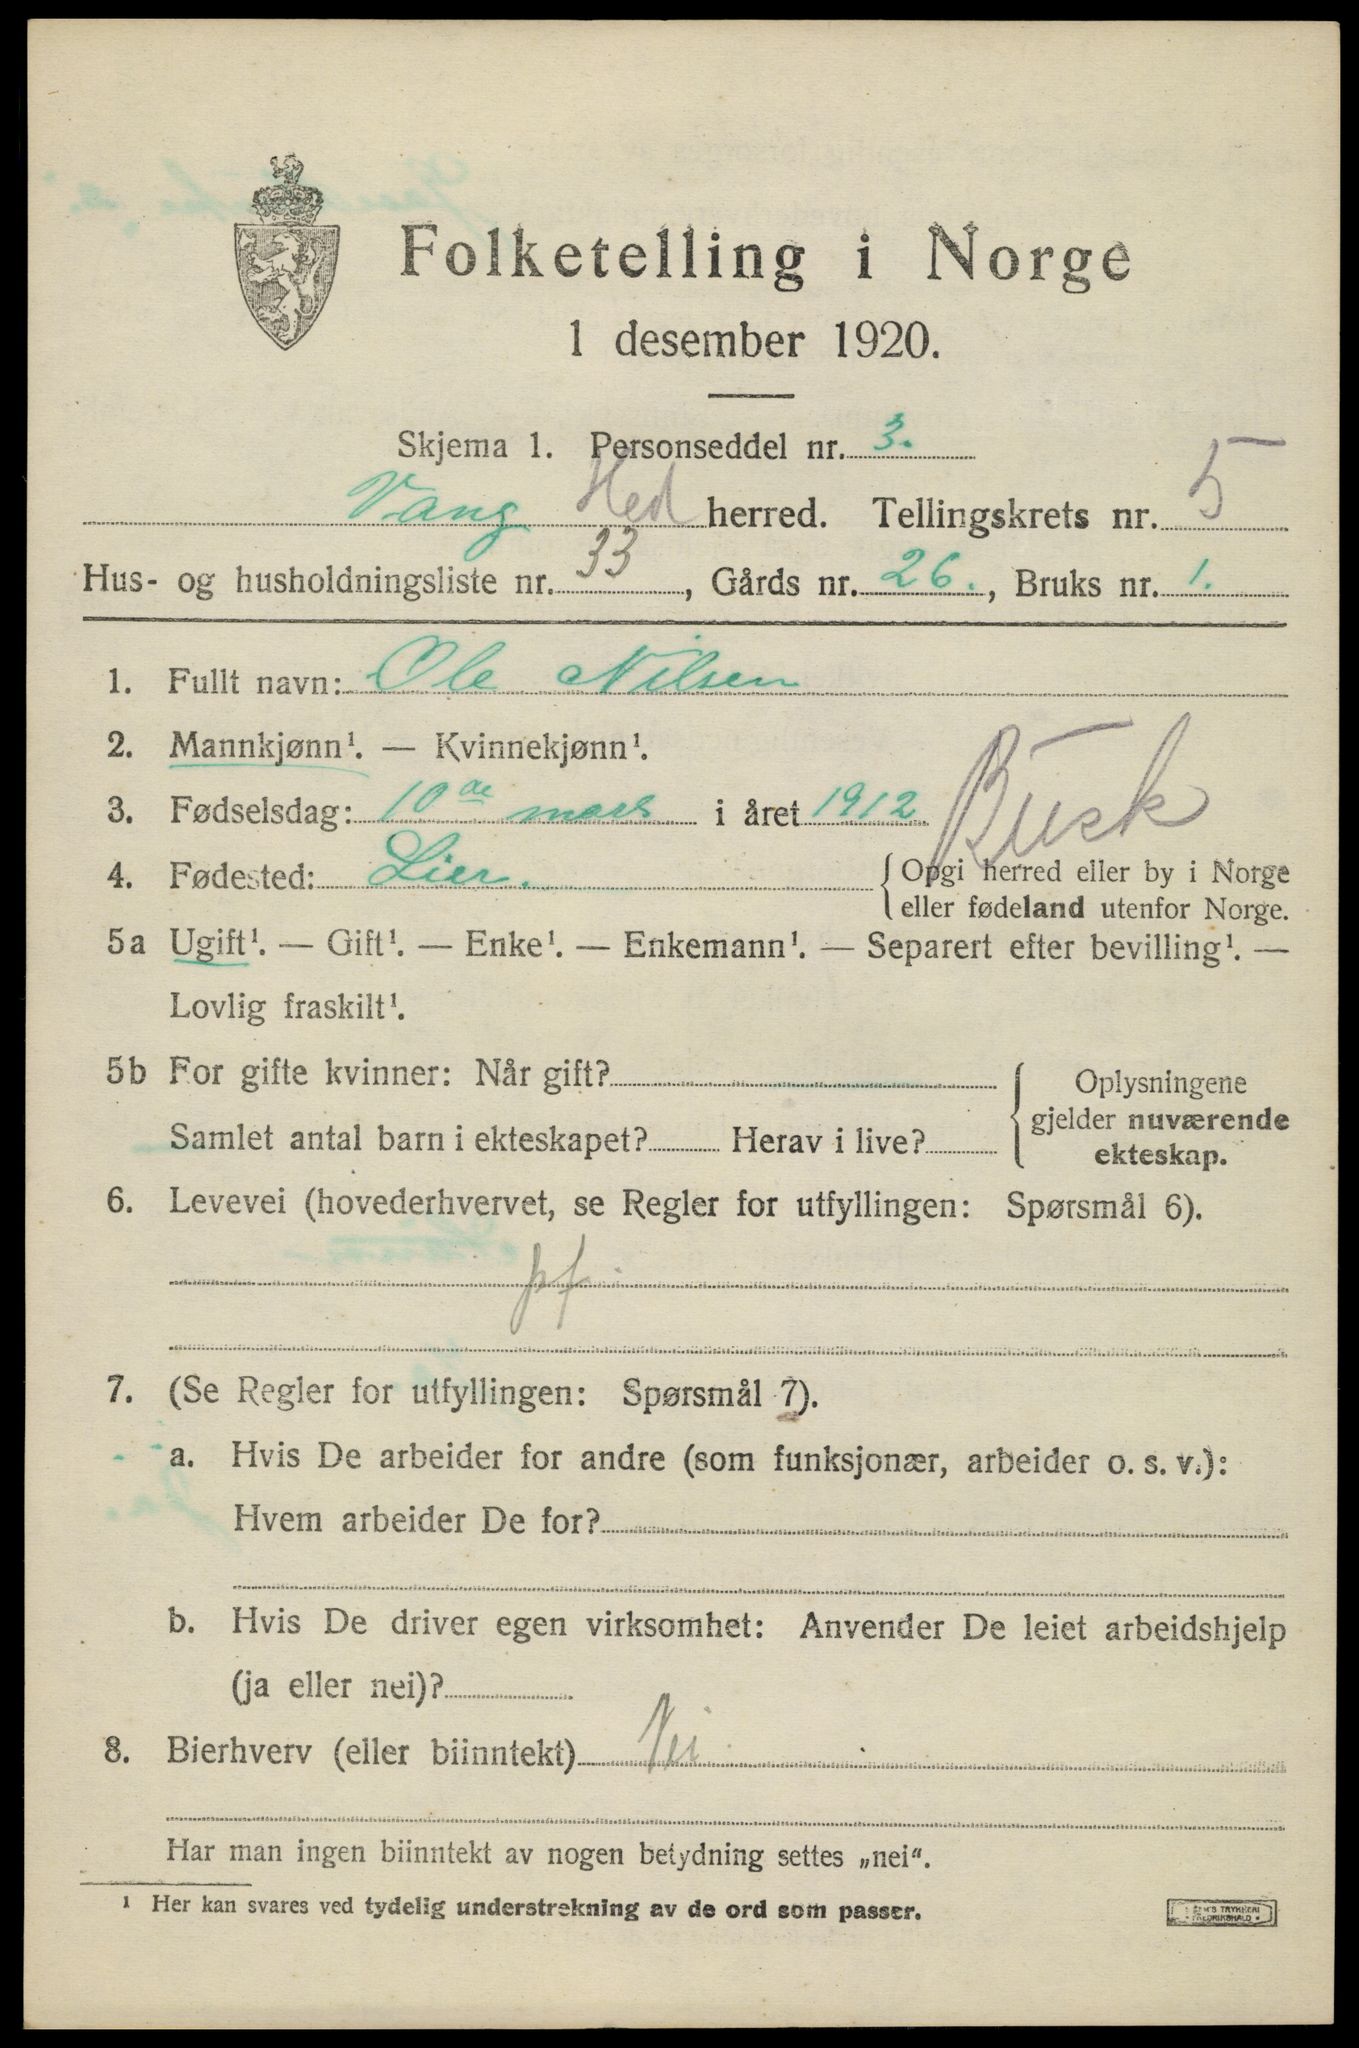 Folketelling i Norge
1 desember 1920.
Skjema 1. Personseddel nr. 3.
Vang Hed herred. Tellingskrets nr. 5
Hus- og husholdningsliste nr. 33, Gårds nr. 26., Bruks nr. 1.
1. Fullt navn: Ole Nilsen
2. Mannkjønn¹. — Kvinnekjønn¹.
3. Fødselsdag: 10de mars i året 1912
Busk
4. Fødested: Lier. Opgi herred eller by i Norge
eller fødeland utenfor Norge.
5a Ugift¹. — Gift¹. — Enke¹. — Enkemann¹. — Separert efter bevilling¹. —
Lovlig fraskilt¹.
5b For gifte kvinner: Når gift? Oplysningene
gjelder nuværende
Samlet antal barn i ekteskapet? Herav i live?
ekteskap.
6. Levevei (hovederhvervet, se Regler for utfyllingen: Spørsmål 6).
pf.
7. (Se Regler for utfyllingen: Spørsmål 7).
a. Hvis De arbeider for andre (som funksjonær, arbeider o. s. v.):
Hvem arbeider De for?
b. Hvis De driver egen virksomhet: Anvender De leiet arbeidshjelp
(ja eller nei)?
8. Bierhverv (eller biinntekt) Nei
Har man ingen biinntekt av nogen betydning settes „nei“.
¹ Her kan svares ved tydelig understrekning av de ord som passer.
TRYKKERI
FREDRIKSHALD